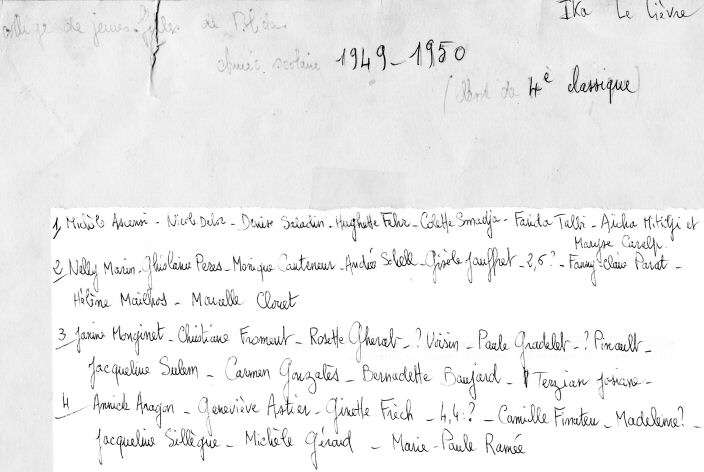 Ika Le Lièvre
collège de jeunes filles de Blida
année scolaire 1949-1950
4è classique
1, Michèle Ascensi - Nicole Delor - Denise Saladin - Hughette Fehr - Colette Smadja - Farida Talbi - Aïcha Mitidji et
Maryse Carelp.
2 Nelly Marin - Ghislaine Peres - Monique Cauteneur - Andrée Schell - Gisèle Jauffret - 2,6? - Fanny-Claire Parat -
Hélène Mailhos - Marcelle Clouet
3 Janine Monginet - Christiane Froment - Rosette Gherab - ? Voisin - Paule Gradelet - ? Pinault -
Jacqueline Sulem - Carmen Gonzalès - Bernadette Baujard - Terzian Josiane -
4 Annick Aragon - Geneviève Astier - Ginette Frèch - 4,4:? - Camille Finateu - Madeleine? -
Jacqueline Sillègue - Michèle Gérard - Marie-Paule Ramée